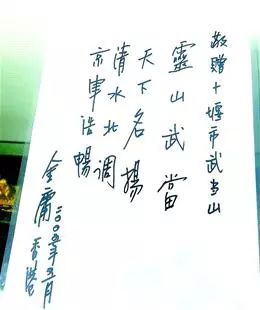 敬贈十堰市武当山
靈山武當
天下名揚
清水北调
京浩暢
金庸
二〇〇五年五月
香港